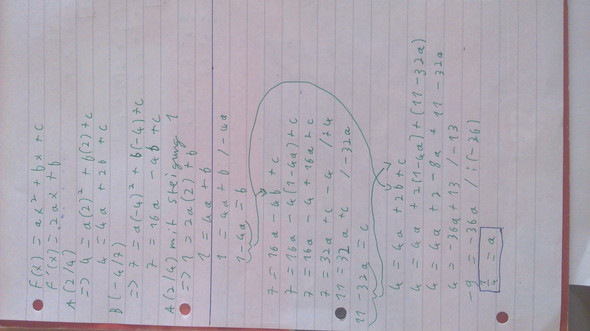 f(x) = ax² + bx + c
f'(x) = 2ax + b
A(2/4)
=> 4 = a(2)² + b(2) + c
4 = 4a + 2b + c
B(-4/7)
=> 7 = a(-4)² + b(-4) + c
7 = 16a - 4b + c
A(2/4) mit steigung 1
=> 1 = 2a(2) + b
1 = 4a + b
1 = 4a + b /-4a
1-4a = b
7 = 16a - 4b + c
7 = 16a - 4(1-4a) + c
7 = 16a - 4 + 16a + c
7 = 32a + c - 4 /+4
11 = 32a + c /-32a
11 - 32a = c
4 = 4a + 2b + c
4 = 4a + 2(1-4a) + (11-32a)
4 = 4a + 2 - 8a + 11 - 32a
4 = -36a + 13 /-13
-9 = -36a /:(-36)
1/4 = a